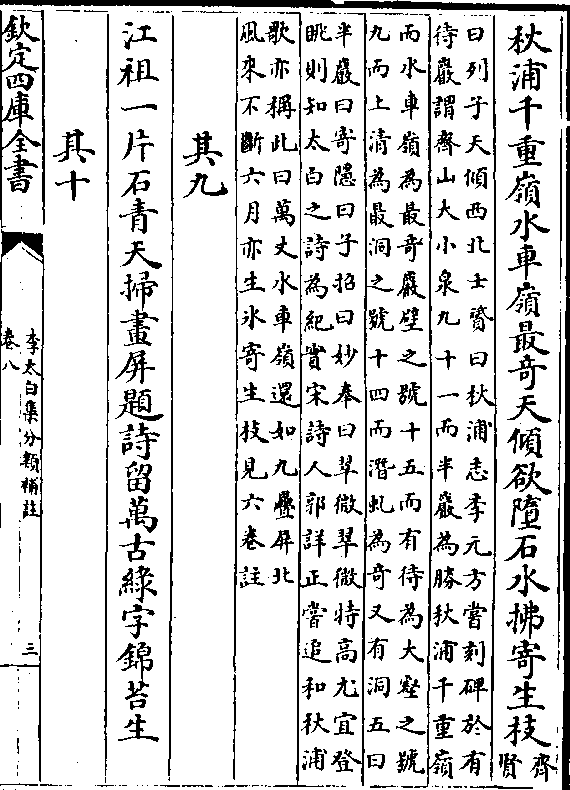 秋浦千重嶺水車嶺最竒天傾欲墮石水拂寄生枝齊賢
曰列子天傾西北士贇曰秋浦志李元方嘗刻碑於有
待巖謂齊山大小泉九十一而半巖為勝秋浦千重嶺
而水車嶺為最竒巖壁之號十五而有待為大壑之號
九而上清為最洞之號十四而潛虬為竒又有洞五曰
半巖曰寄隱曰子招曰妙奉曰翠微翠微特髙尤宜登
眺則知太白之詩為紀實宋詩人郭詳正嘗追和秋浦
歌亦稱此曰萬丈水車嶺還如九疊屏北
風來不斷六月亦生氷寄生枝見六卷註
其九
江祖一片石青天掃畫屏題詩留萬古緑字錦苔生
其十
欽定四庫全書
李太白集分類補註
卷八
三